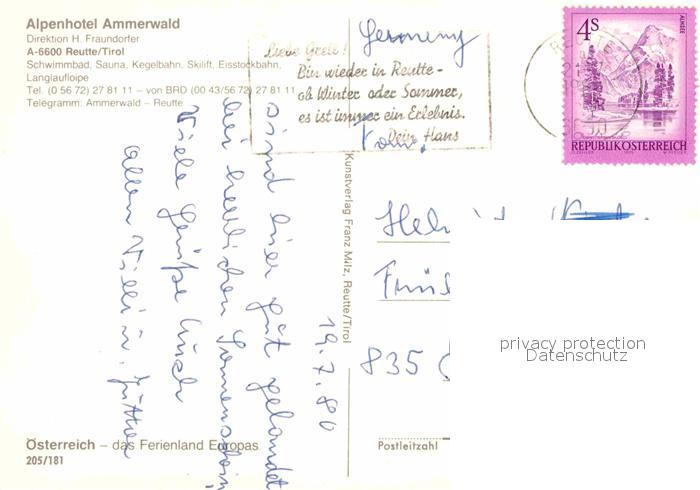 Alpenhotel Ammerwald
Direktion H. Fraundorfer
A-6600 Reutte/Tirol
Schwimmbad, Sauna, Kegelbahn, Skilift, Eisstockbahn,
Langlaufloipe
Tel. (0 56 72) 27 81 11 – von BRD (00 43/56 72) 27 81 11
Telegramm: Ammerwald – Reutte
Liebe Grete!
Bin wieder in Reutte -
ob Winter oder Sommer,
es ist immer ein Erlebnis.
Dein Hans
Germany
4s
ALMSEE
REPUBLIK ÖSTERREICH
19.7.80
sind hier gut gelandet
bei herrlichen Sonnenschein,
Viele Grüße Euch
allen Willi u.
Kunstverlag Franz Milz, Reutte/Tirol
835
privacy protection
Datenschutz
Postleitzahl
Österreich – das Ferienland Europas
205/181